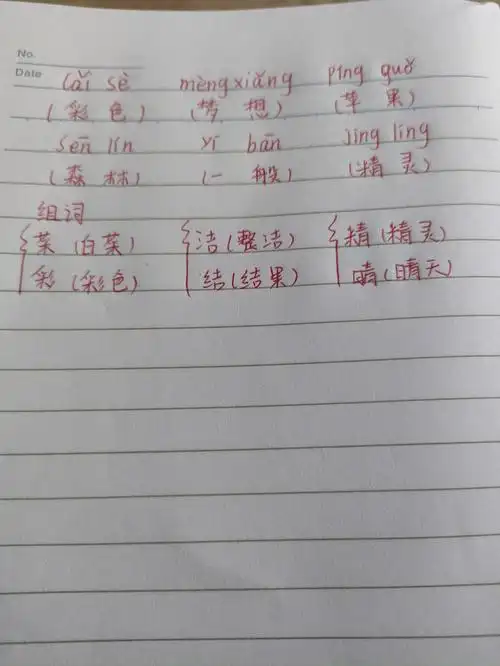 No.
Date
cǎi sè mèng xiǎng píng guǒ
(彩色) (梦想) (苹果)
sēn lín yī bān jīng líng
(森林) (一般) (精灵)
组词
菜(白菜) 洁(整洁) 精(精灵)
彩(彩色) 结(结果) 晴(晴天)